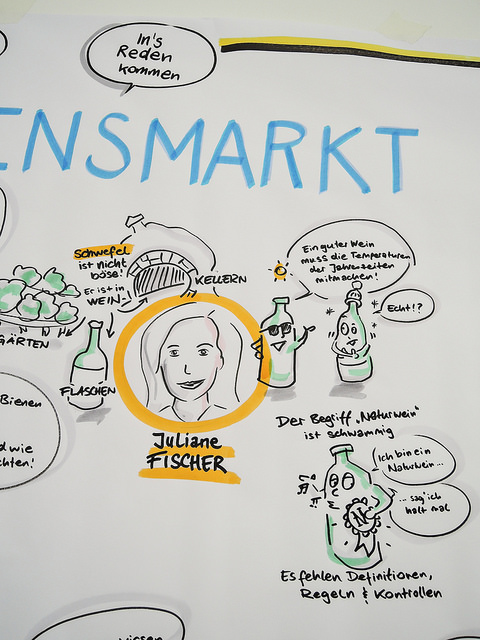 In's
Reden
kommen
ENSMARKT
Schwefel
ist nicht
böse!
Er ist in
WEIN-!
KELLERN
Ein guter Wein
muss die Temperaturen
der Jahreszeiten
mitmachen!
Echt!?
GÄRTEN
FLASCHEN
Bienen
wie
chten!
Juliane
FISCHER
Der Begriff „Naturwein"
ist schwammig
Ich bin ein
Naturwein...
... sag' ich
halt mal
Es fehlen Definitionen,
Regeln & Kontrollen